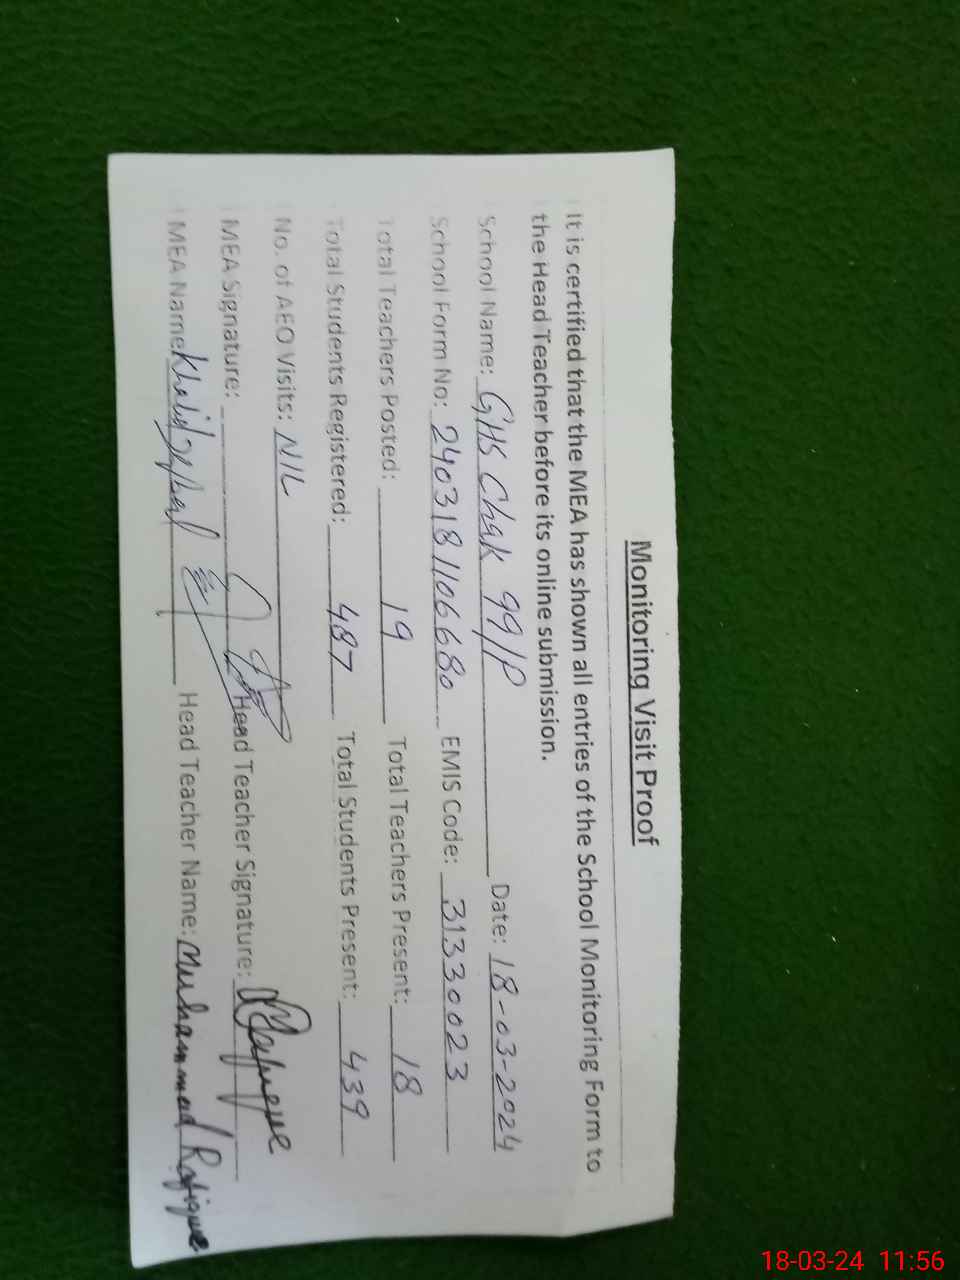 Monitoring Visit Proof
It is certified that the MEA has shown all entries of the School Monitoring Form to
the Head Teacher before its online submission.
School Name: GHS Chak 99/P Date: 18-03-2024
School Form No: 2403181106680 EMIS Code: 31330023
Total Teachers Posted: 19 Total Teachers Present: 18
Total Students Registered: 487 Total Students Present: 439
No. of AEO Visits: NIL
MEA Signature: Head Teacher Signature: MRafique
MEA Name Khalid Iqbal Head Teacher Name: Muhammad Rafique
18-03-24 11:56